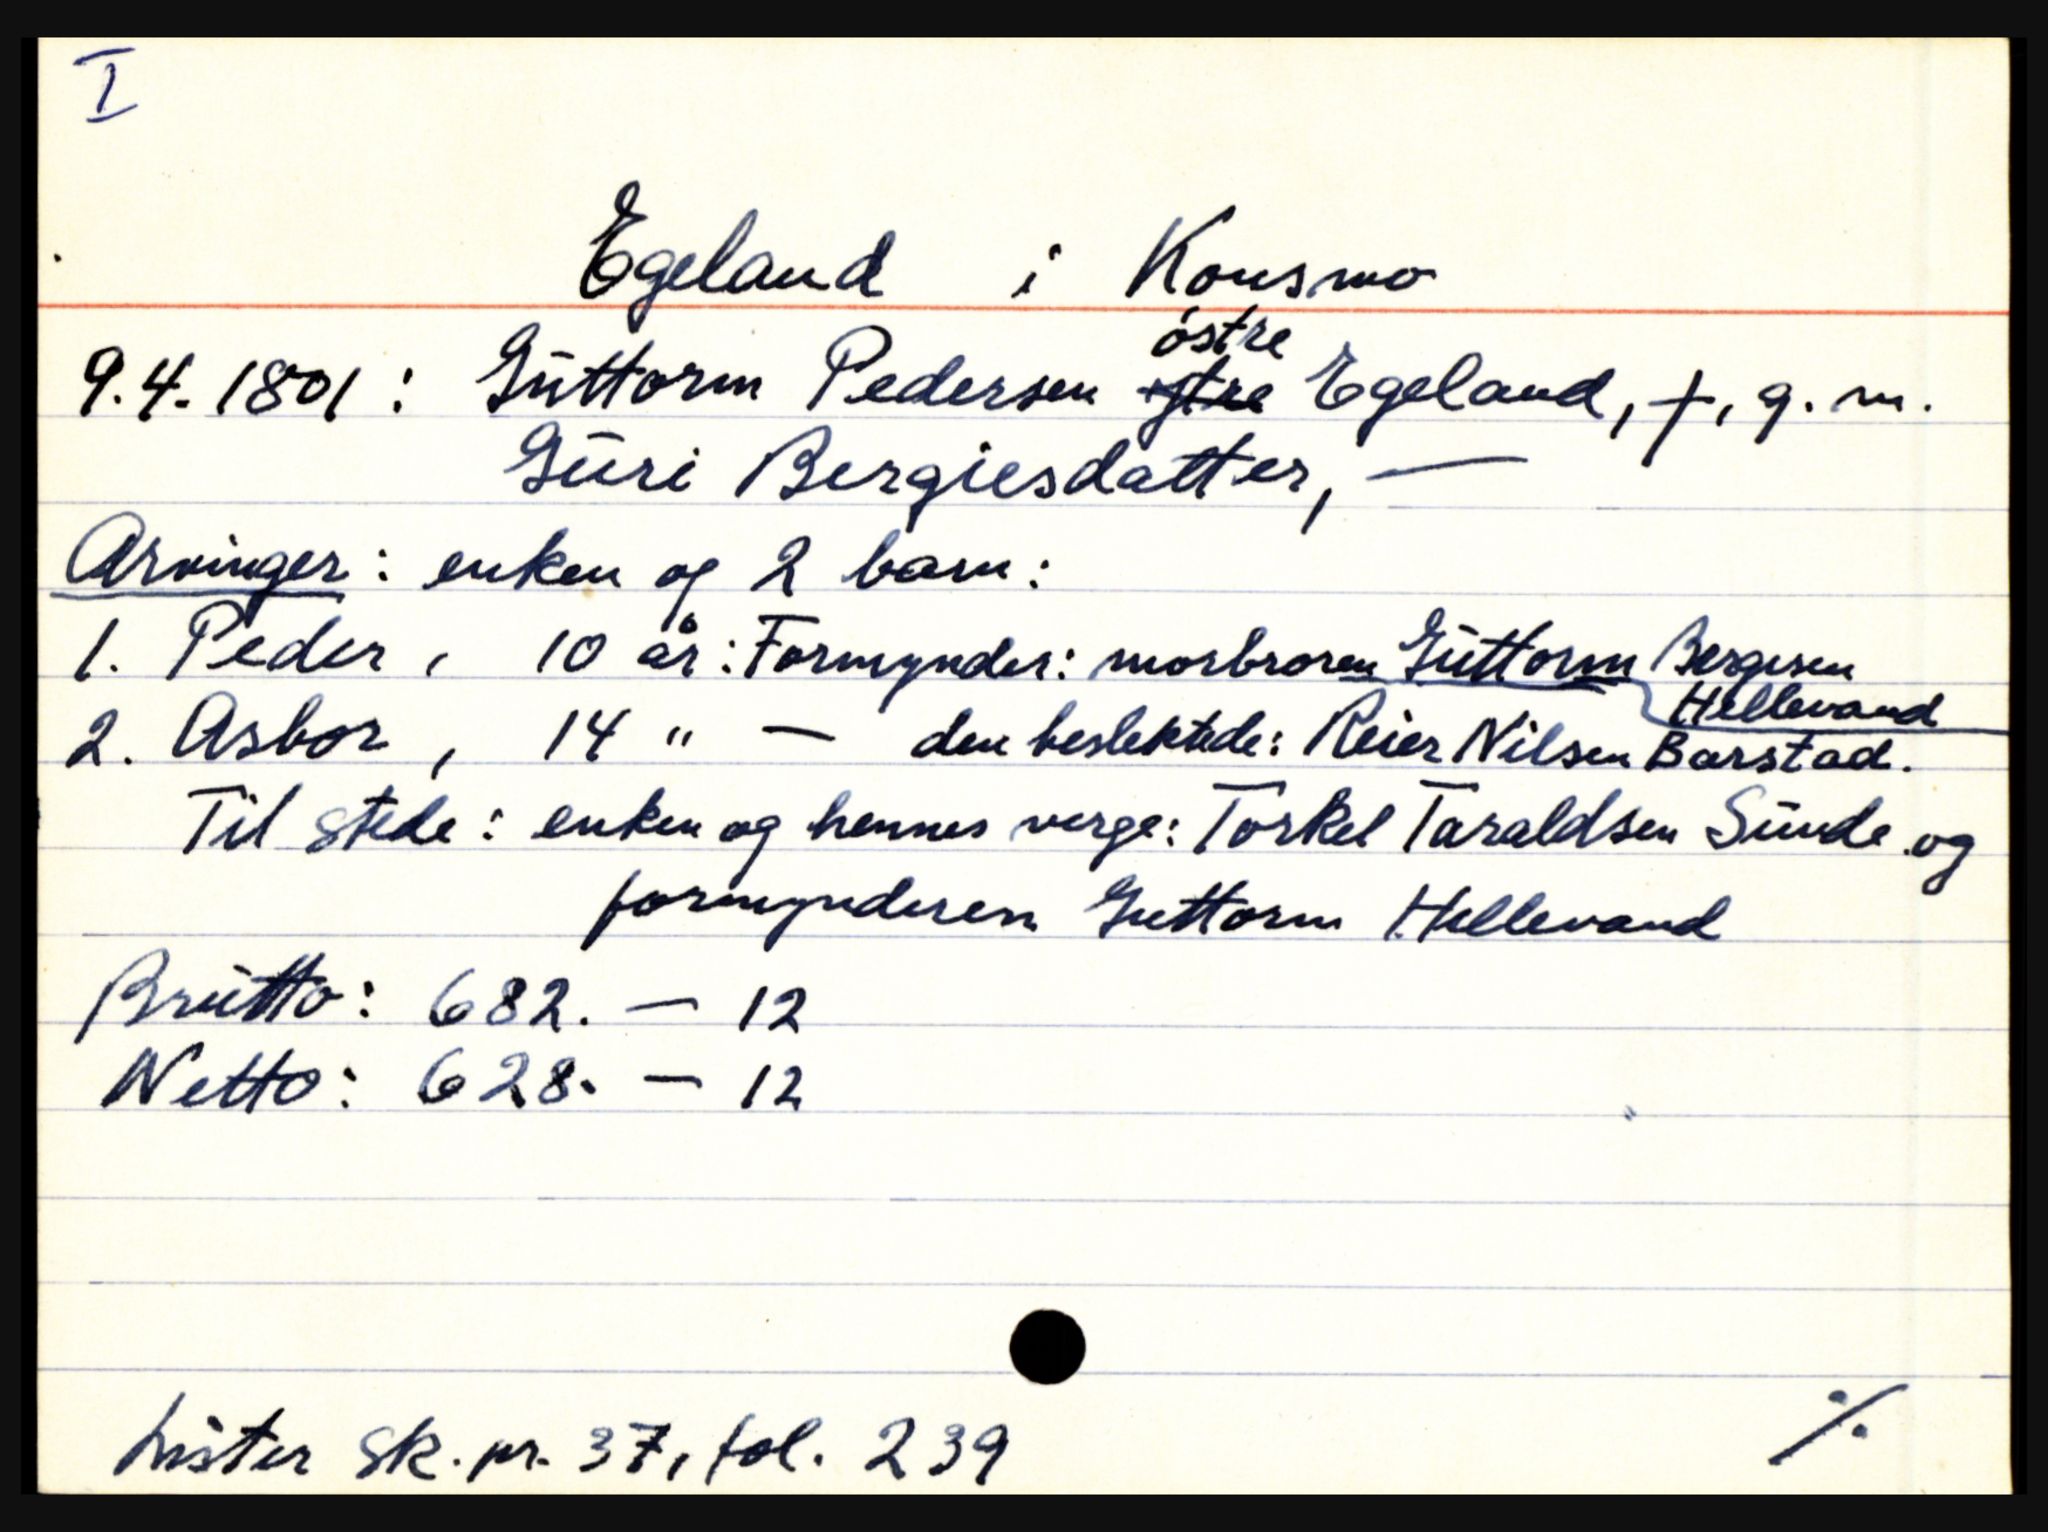 I
Egeland i Konsmo
østre
9.4.1801: Guttorm Pedersen ytre Egeland, †, g. m.
Guri Bergiesdatter, —
Arvinger: enken og 2 barn:
1. Peder, 10 år: Formynder: morbroren Guttorm Bergesen
Hellevand
2. Asbor, 14 " — den beslektede: Reier Nilsen Barstad.
Til stede: enken og hennes verge: Torkel Taraldsen Sunde og
formynderen Guttorm Hellevand
Brutto: 682. — 12
Netto: 628. — 12
Lister sk. pr. 37, fol. 239
./.